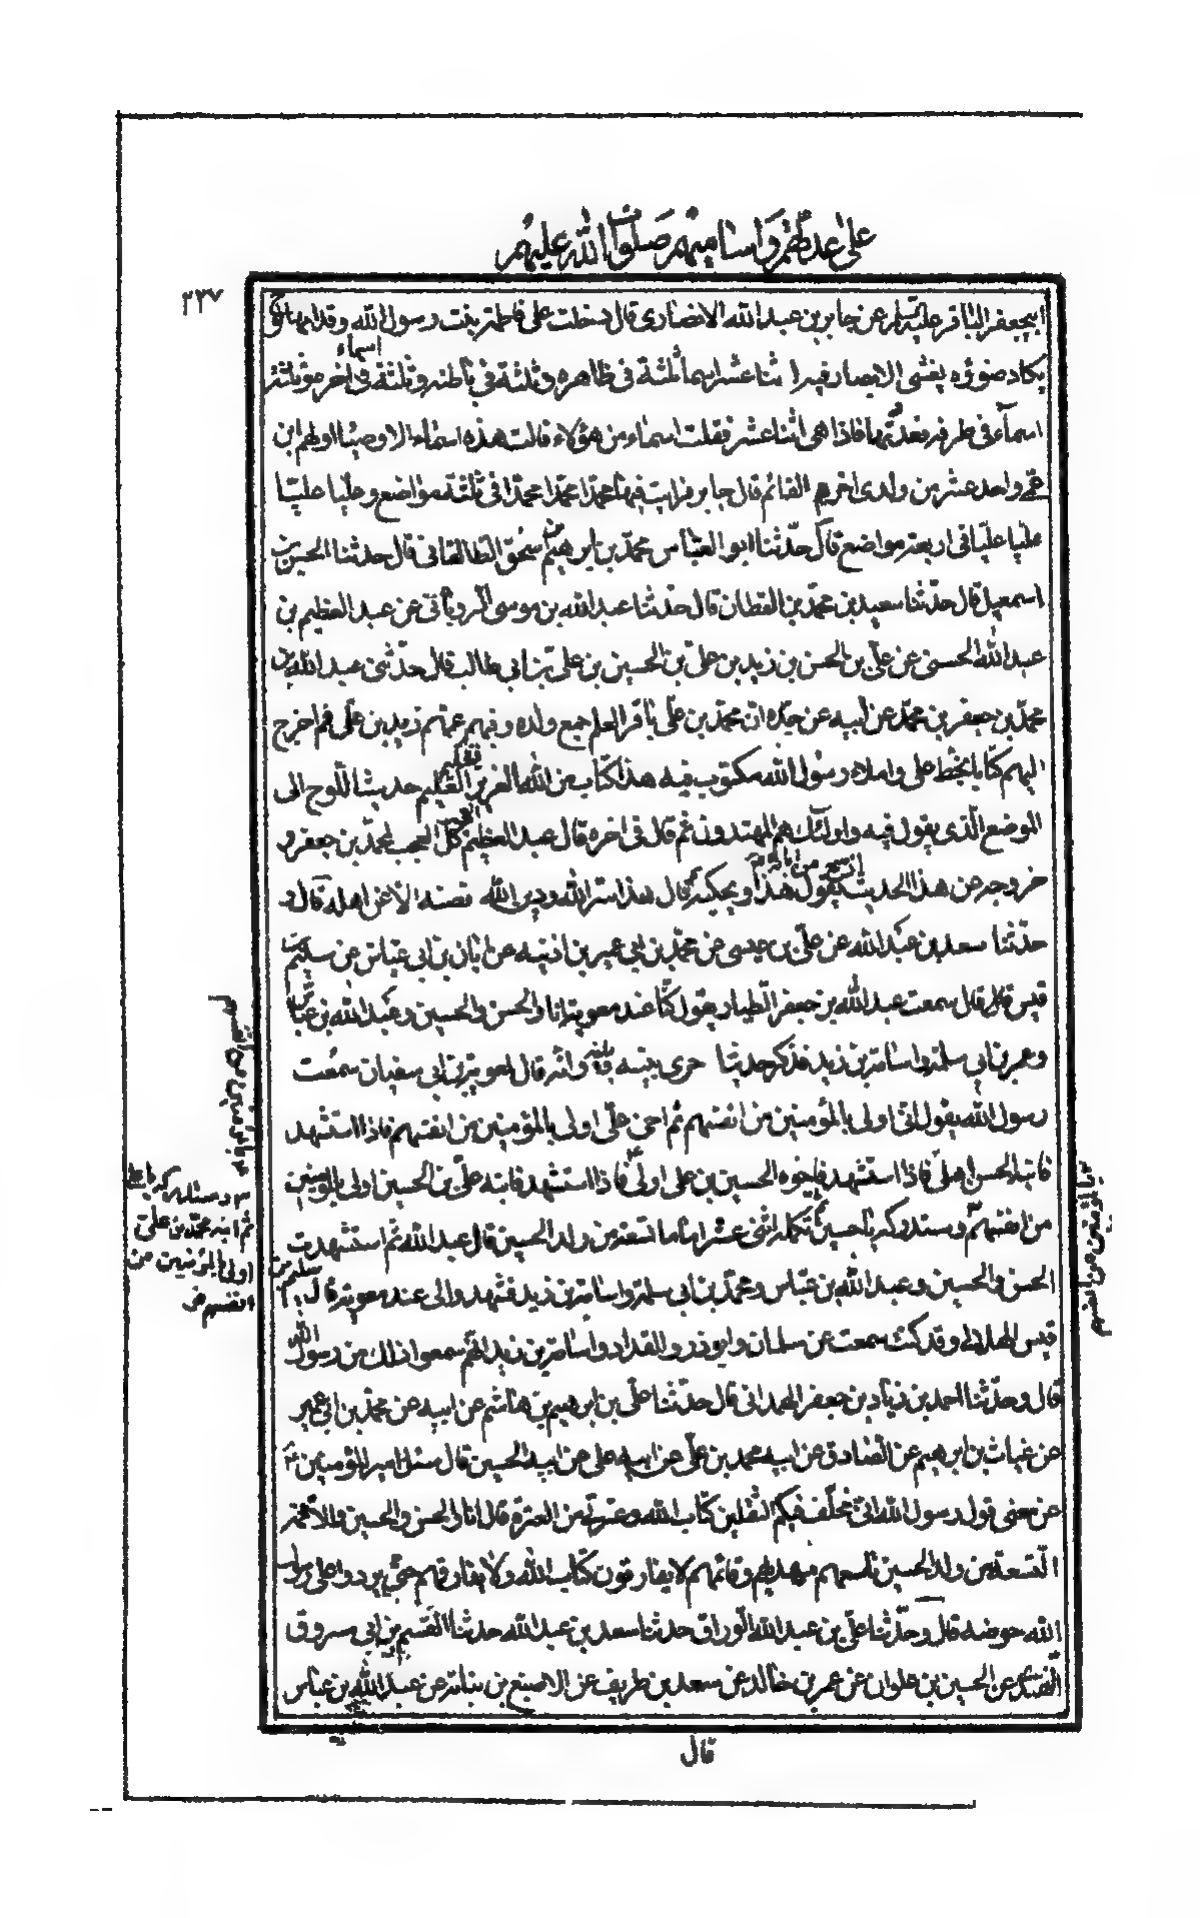 على عددهم و اسامیهم صلوات الله علیهم
٣٣٧
ابیجعفر الباقر علیه السلام عن جابر بن عبد الله الانصاری قال دخلت علی فاطمة بنت رسول الله و قدامها لوح
یکاد ضوؤه یغشی الابصار فیه اثنا عشر اسما ثلثة فی ظاهره و ثلثة فی باطنه و ثلثة اسماء فی اخره و ثلثة
اسمآء فی طرفه فعددتها فاذا هی اثنا عشر فقلت اسماء من هؤلاء قالت هذه اسماء الاوصیاء اولهم ابن
عمی و احد عشر من ولدی اخرهم القائم قال جابر فرایت فیها محمدا محمدا محمدا فی ثلثة مواضع و علیا علیا
علیا علیا فی اربعة مواضع قال حدثنا ابو العباس محمد بن ابرهیم بن اسحق الطالقانی قال حدثنا الحسین بن
اسمعیل قال حدثنا سعید بن محمد بن القطان قال حدثنا عبد الله بن موسی الرویانی عن عبد العظیم بن
عبد الله الحسنی عن علی بن الحسن بن زید بن علی بن الحسین بن علی بن ابی طالب قال حدثنی عبد الله بن
محمد بن جعفر بن محمد عن ابیه عن جده ان محمد بن علی باقر العلم جمع ولده و فیهم عمهم زید بن علی ثم اخرج
الیهم کتابا بخط علی و املاء رسول الله مکتوب فیه هذا کتاب من الله العزیز العلیم حدیث اللوح الی
الموضع الذی یقول فیه و اولئک هم المهتدون ثم قال فی اخره قال عبد العظیم کل العجب لمحمد بن جعفر و
خروجه عن هذا الحدیث یقول هذا و یحکیه ثم قال هذا سر الله و دین الله فصنه الا عن اهله قال و
حدثنا سعد بن عبد الله عن علی بن عیسی عن محمد بن ابی عمیر بن اذینه عن ابان بن ابی عیاش عن سلیم بن
قیس قال قال سمعت عبد الله بن جعفر الطیار یقول کنا عند معویة انا و الحسن و الحسین و عبد الله بن عباس
و عمر بن ابی سلمة و اسامة بن زید فذکر حدیثا جری بینه و بینه و انه قال لمعویة بن ابی سفیان سمعت
رسول الله یقول انی اولی بالمؤمنین من انفسهم ثم اخی علی اولی بالمؤمنین من انفسهم فاذا استشهد
فابنه الحسن فاذا استشهد فاخوه الحسین بن علی اولی فاذا استشهد فابنه علی بن الحسین اولی بالمؤمنین
من انفسهم و ستدرکه یا حسین تکمله اثنی عشر اماما تسعة من ولد الحسین قال عبد الله ثم استشهدت
الحسن و الحسین و عبد الله بن عباس و محمد بن ابی سلمة و اسامة بن زید فشهدوا لی عند معویة قال سلیم بن
قیس الهلالی و قد کنت سمعت عن سلمان و ابی ذر و المقداد و اسامة بن زید انهم سمعوا ذلک من رسول الله
قال و حدثنا احمد بن زیاد بن جعفر الهمدانی قال حدثنا علی بن ابرهیم بن هاشم عن ابیه عن محمد بن ابی عمیر
عن غیاث بن ابرهیم عن الصادق عن ابیه محمد بن علی عن ابیه علی عن ابیه الحسین قال سئل امیر المؤمنین
عن معنی قول رسول الله انی مخلف فیکم الثقلین کتاب الله و عترتی من العترة قال انا و الحسن و الحسین و الائمة
التسعة من ولد الحسین تاسعهم مهدیهم و قائمهم لا یفارقون کتاب الله و لا یفارقهم حتی یردوا علی رسول
الله حوضه قال و حدثنا علی بن عبد الله الوراق حدثنا سعد بن عبد الله حدثنا القسم بن ابی مسروق
عن الحسین بن علوان عن عمر بن خالد عن سعد بن طریف عن الاصبغ بن نباتة عن عبد الله بن عباس
قال
ثم ابنه محمد بن علی
اولی بالمؤمنین من
انفسهم